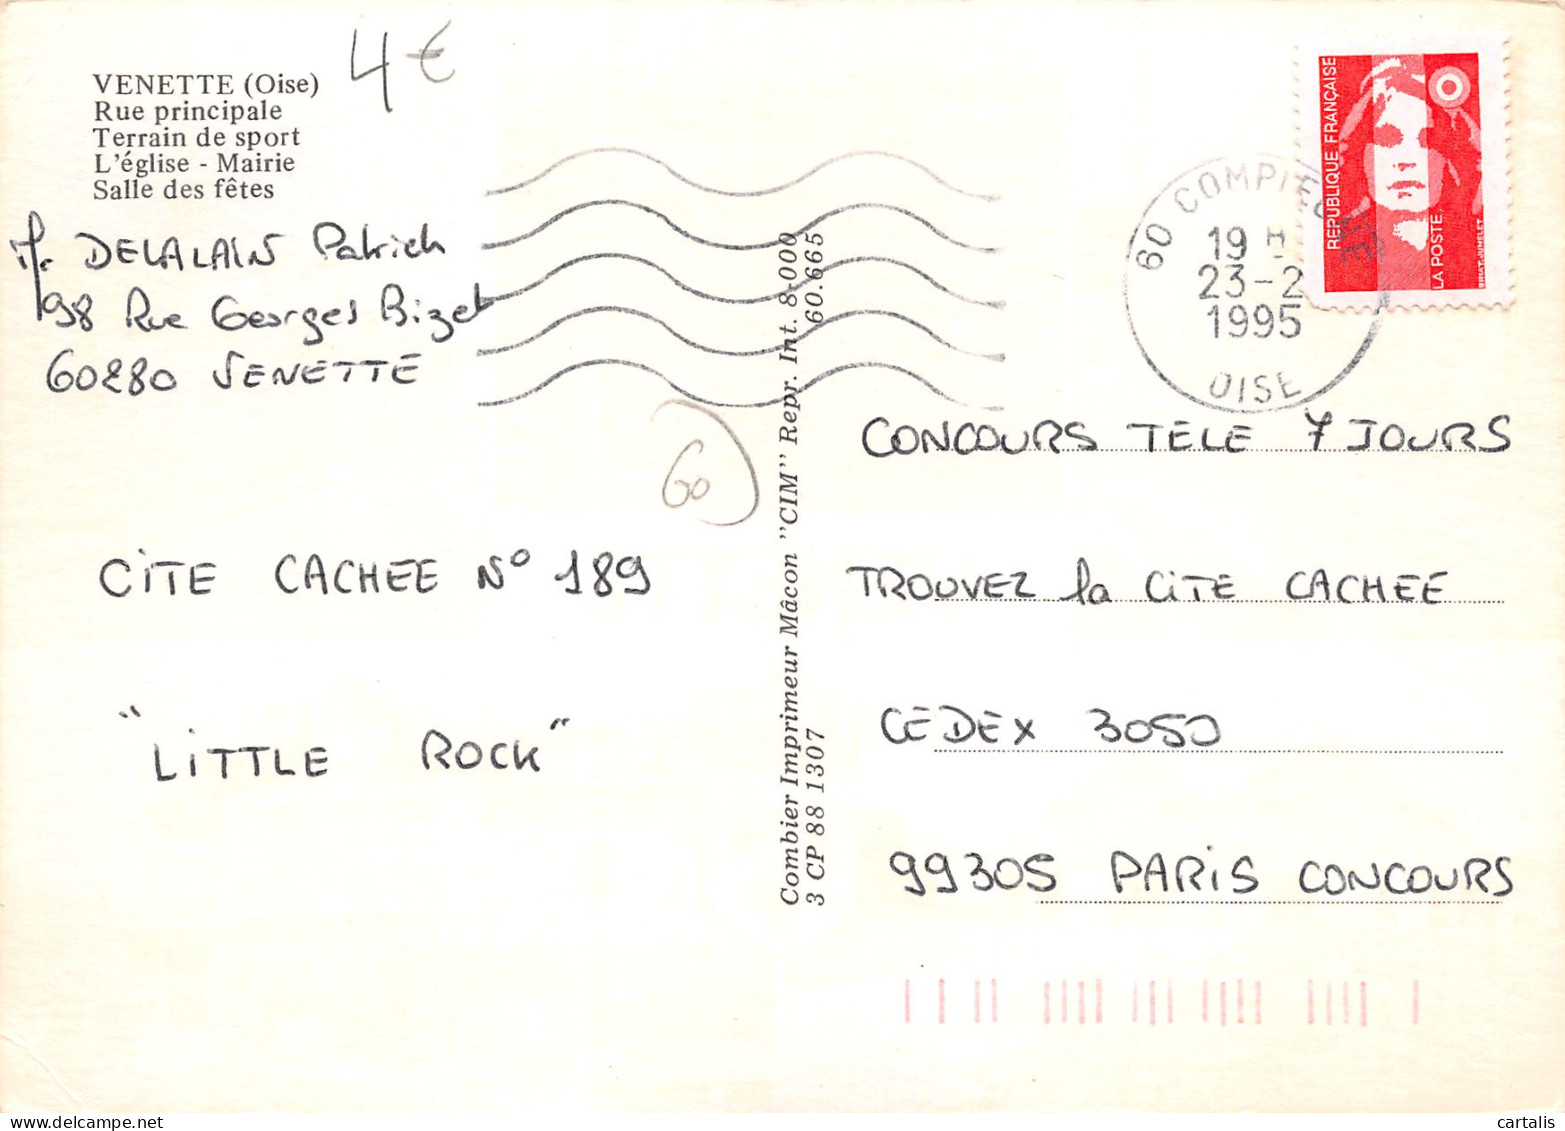 VENETTE (Oise)
Rue principale
Terrain de sport
L'église - Mairie
Salle des fêtes
4 €
DELALAIN Patrick
98 Rue Georges Bizet
60280 VENETTE
60
CiTE CACHEE N° 189
"LiTTLE ROCK"
Combier Imprimeur Mâcon "CIM" Repr. Int. 8-000
3 CP 88 1307 60.665
RÉPUBLIQUE FRANÇAISE
LA POSTE
60 COMPIEGNE
19 H
23-2
1995
OISE
CONCOURS TELE 7 JOURS
TROUVEZ la CiTE CACHEE
CEDEX 3050
99305 PARiS CONCOURS
cartalis